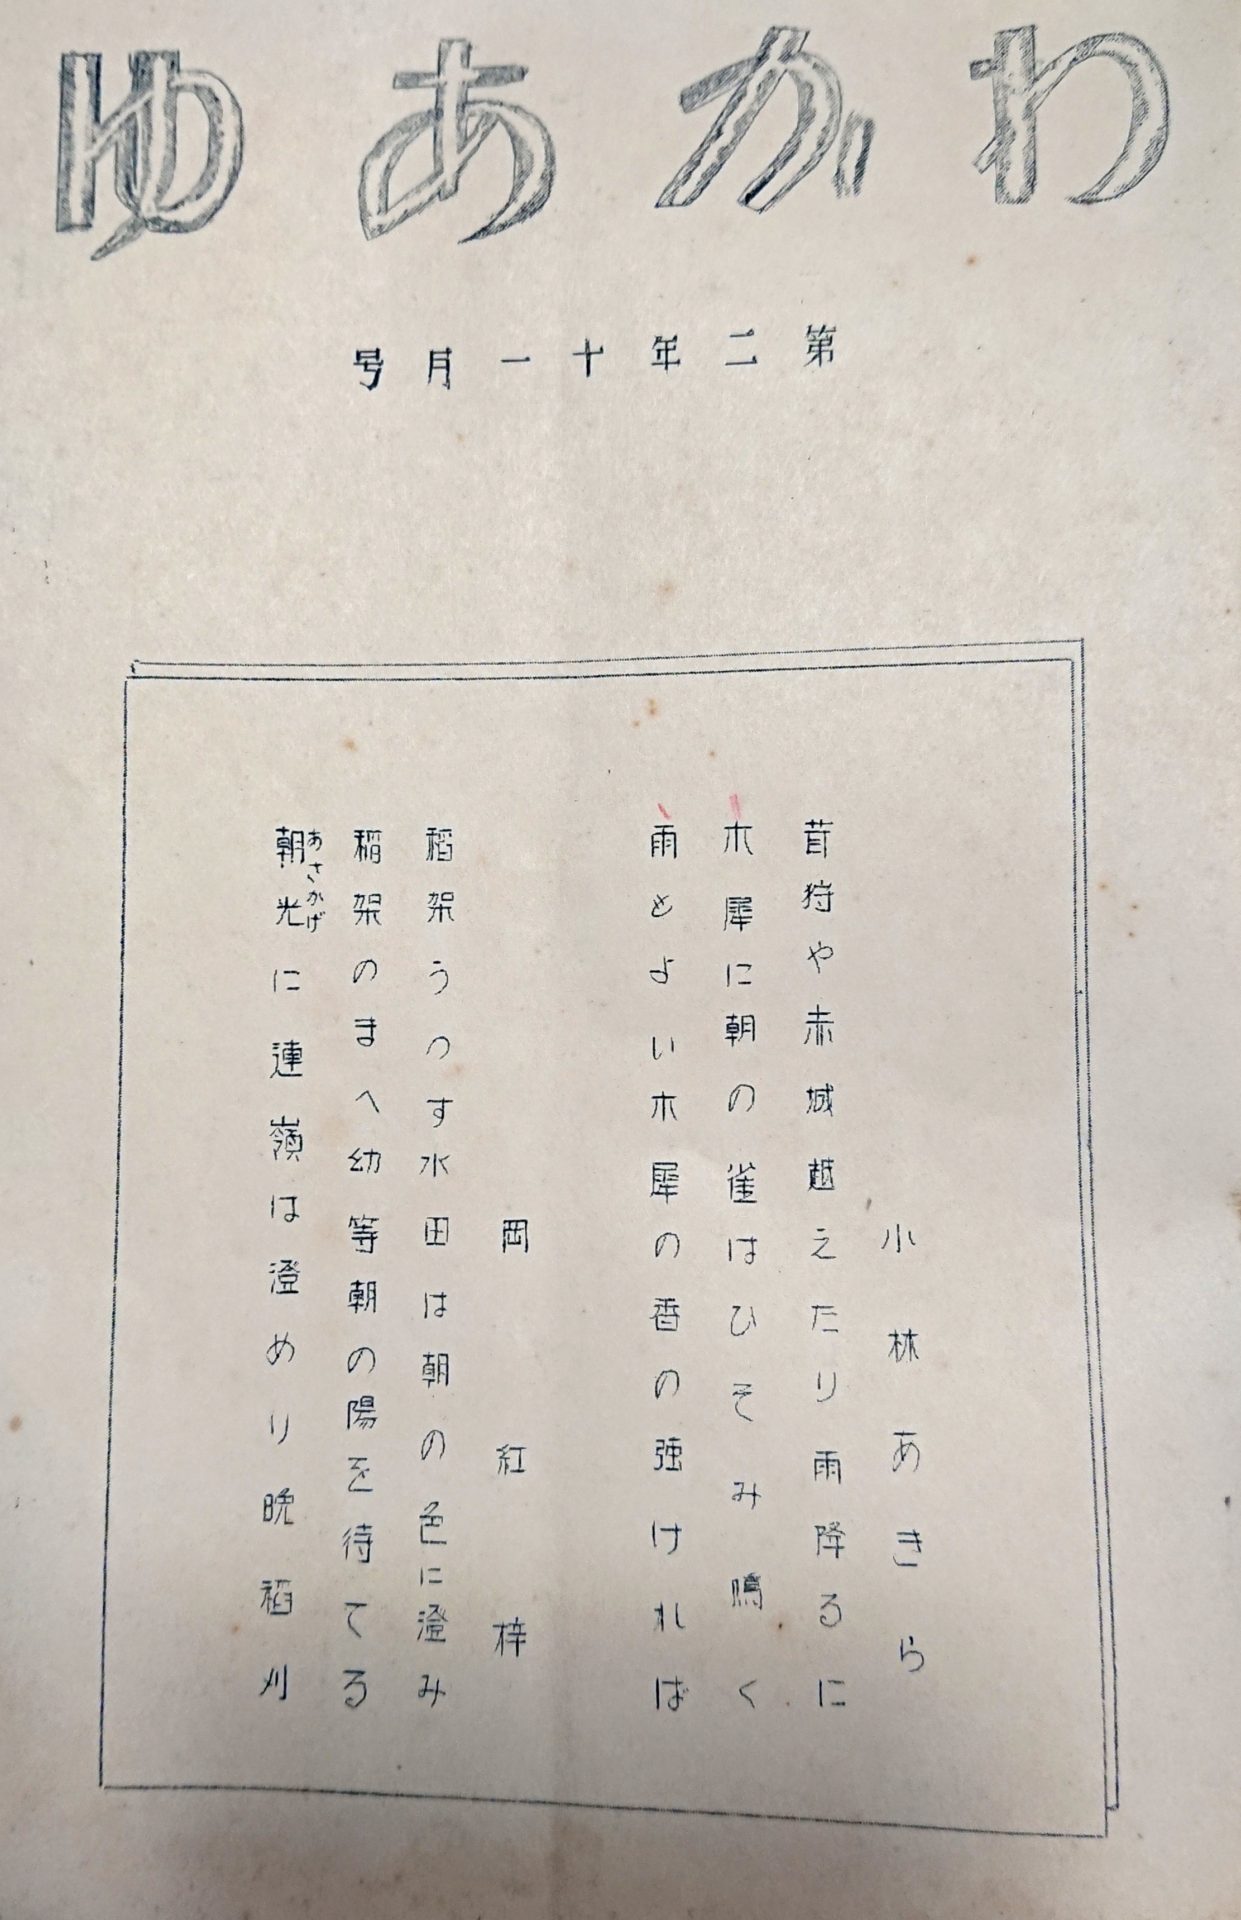 わかあゆ
第二年十一月号
小林あきら
茸狩や赤城越えたり雨降るに
木犀に朝の雀はひそみ鳴く
雨とよい木犀の香の強ければ
岡紅梓
稲架うつす水田は朝の色に澄み
稲架のまへ幼等朝の陽を待てる
朝光に連嶺は澄めり晩稲刈
あさかげ